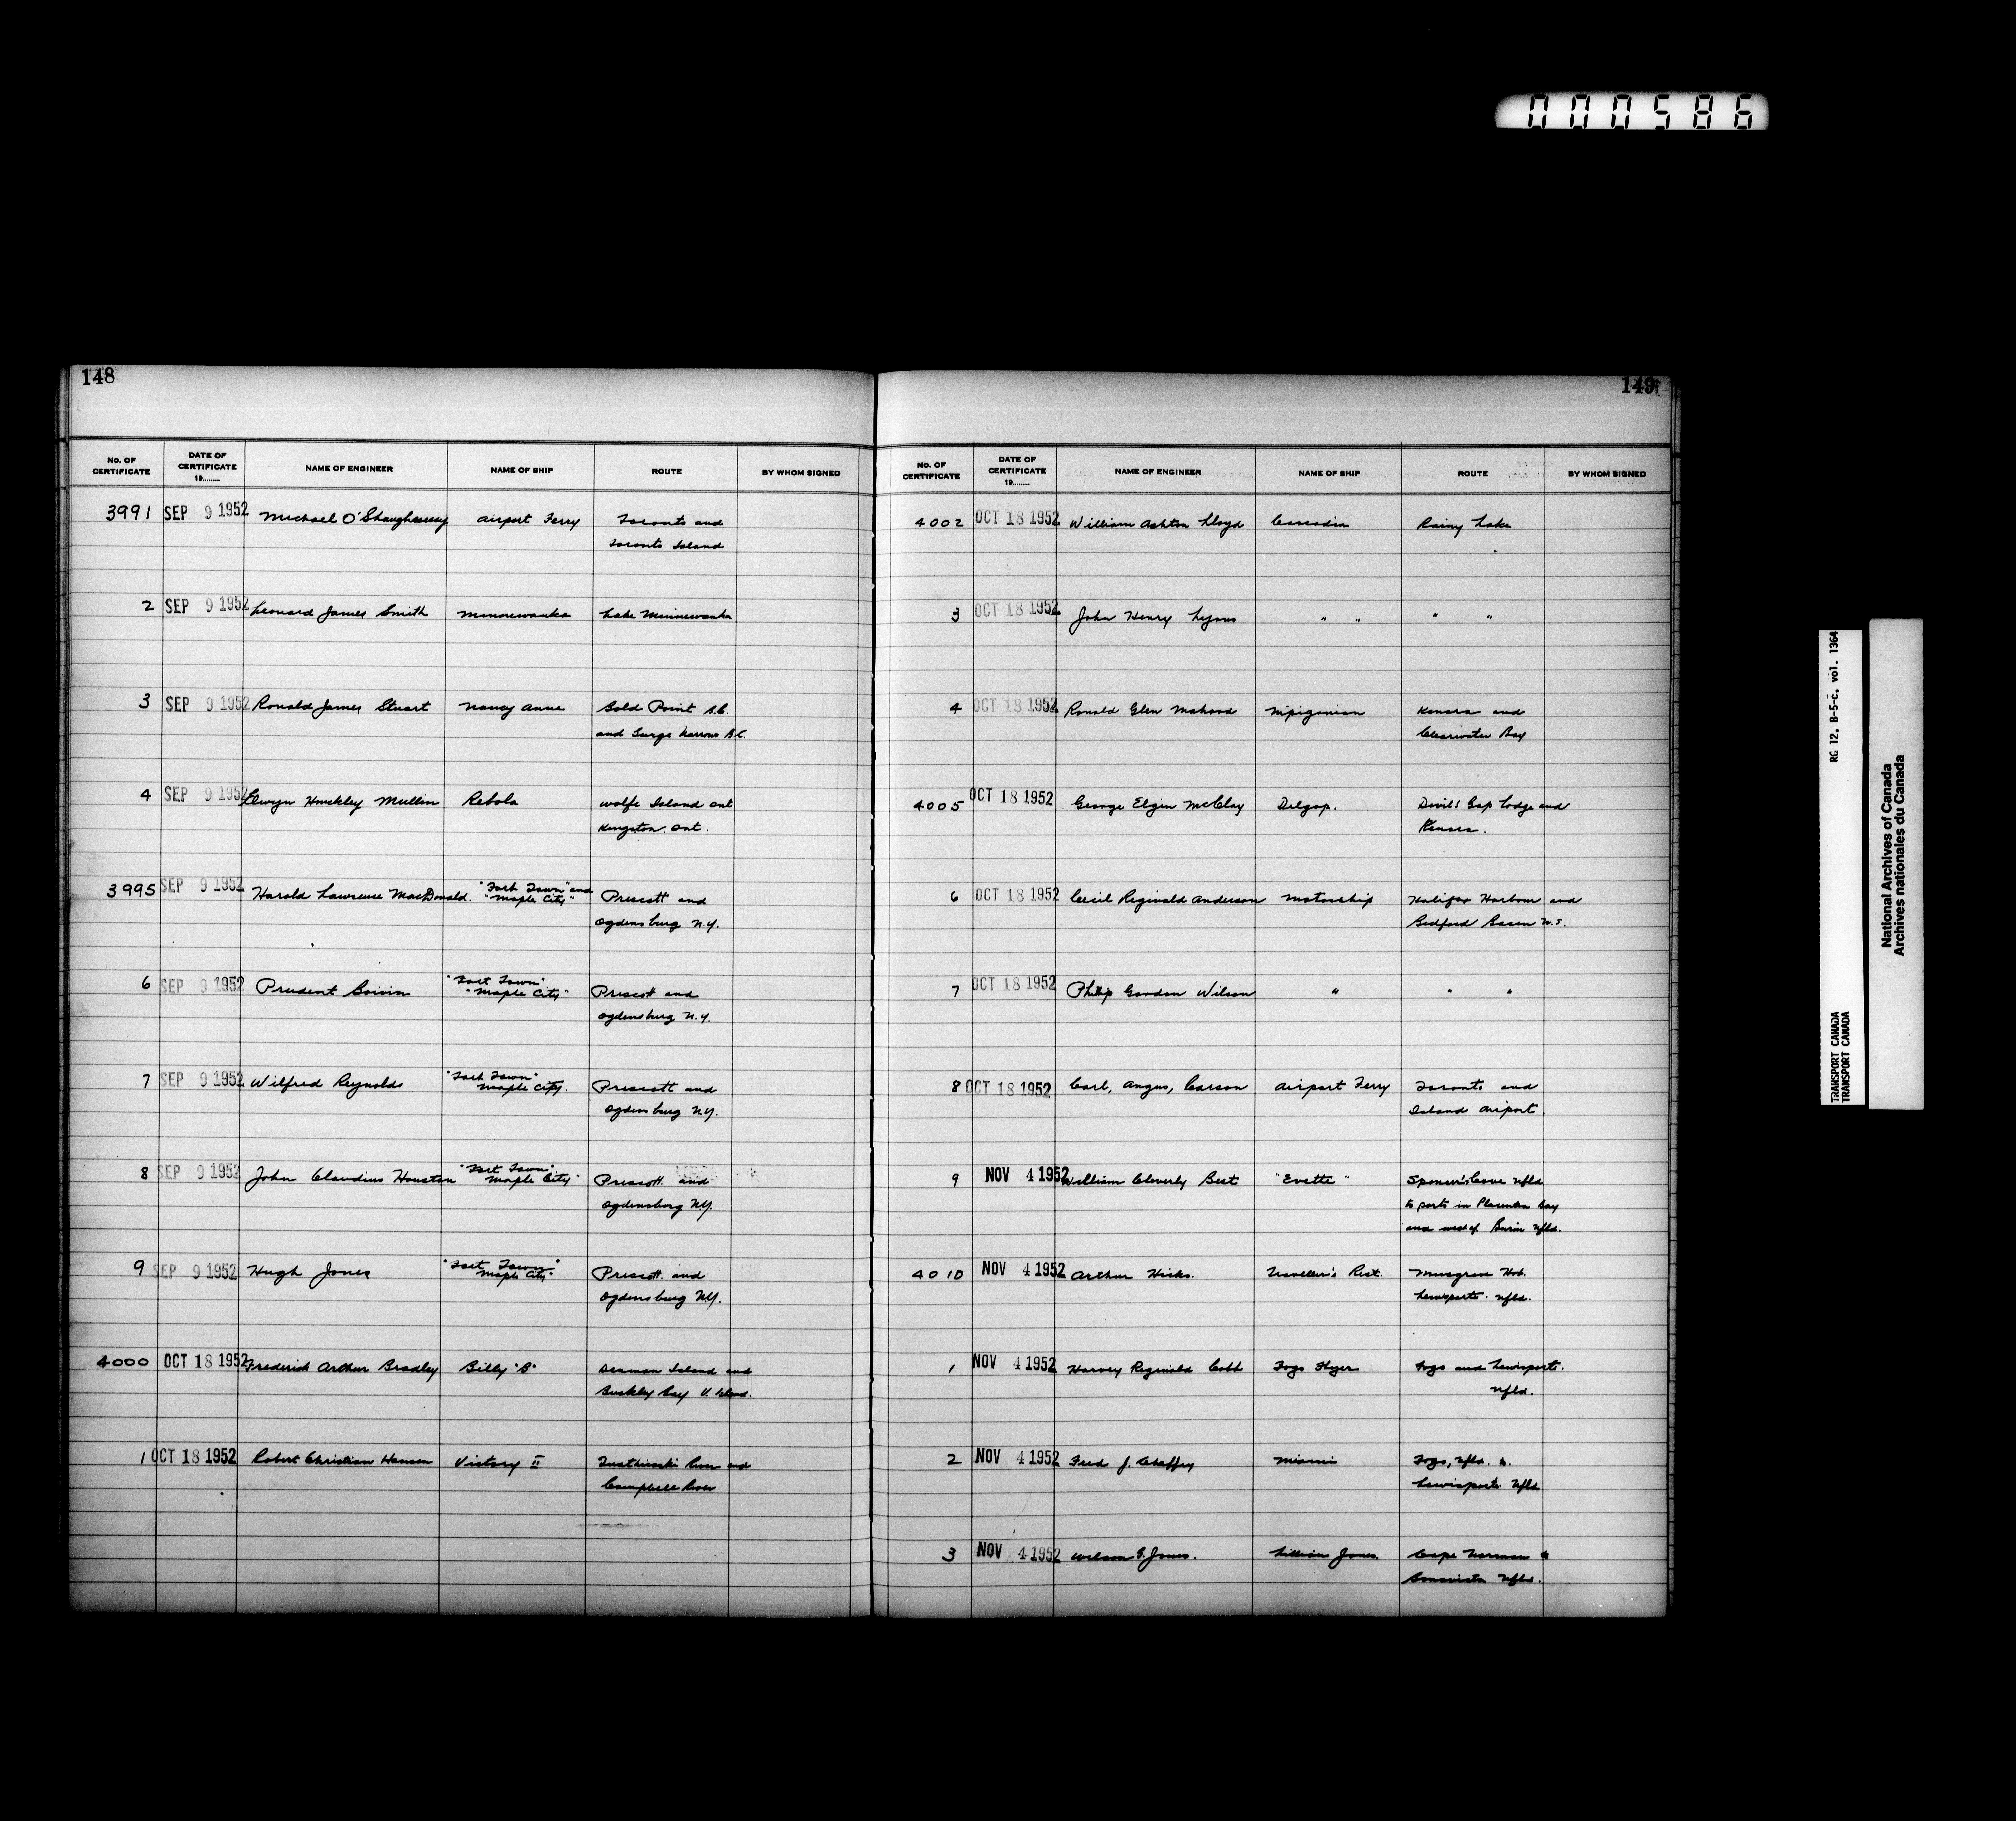 000586
148
No. OF CERTIFICATE DATE OF CERTIFICATE 19........ NAME OF ENGINEER NAME OF SHIP ROUTE BY WHOM SIGNED
3991 SEP 9 1952 Michael O'Shaughnessy Airport Ferry Toronto and
Toronto Island
2 SEP 9 1952 Leonard James Smith Minnewanka Lake Minnewanka
3 SEP 9 1952 Ronald James Stuart Nancy Anne Bold Point B.C.
and Surge Narrows B.C.
4 SEP 9 1952 Elwyn Hinckley Mullin Rebola Wolfe Island Ont
Kingston, Ont.
3995 SEP 9 1952 Harold Lawrence MacDonald. "Fort Town" and
"Maple City" Prescott and
Ogdensburg N.Y.
6 SEP 9 1952 Prudent Boivin "Fort Town"
"Maple City" Prescott and
Ogdensburg N.Y.
7 SEP 9 1952 Wilfred Reynolds "Fort Town"
Maple City. Prescott and
Ogdensburg N.Y.
8 SEP 9 1952 John Claudius Houston "Fort Town"
Maple City" Prescott and
Ogdensburg N.Y.
9 SEP 9 1952 Hugh Jones "Fort Town"
Maple City" Prescott and
Ogdensburg N.Y.
4000 OCT 18 1952 Frederick Arthur Bradley Billy "B" Denman Island and
Buckley Bay V. Island.
1 OCT 18 1952 Robert Christian Hansen Victory II River and
Campbell River
149
No. OF CERTIFICATE DATE OF CERTIFICATE 19........ NAME OF ENGINEER NAME OF SHIP ROUTE BY WHOM SIGNED
4002 OCT 18 1952 William Ashton Lloyd Cascadia Rainy Lake
3 OCT 18 1952 John Henry Lyons " " " "
4 OCT 18 1952 Ronald Glen Mahood Nipigonian Kenora and
Clearwater Bay
4005 OCT 18 1952 George Elgin McClay Delgap. Devil's Gap Lodge and
Kenora.
6 OCT 18 1952 Cecil Reginald Anderson Motorship Halifax Harbour and
Bedford Basin N.S.
7 OCT 18 1952 Phillip Gordon Wilson " " "
8 OCT 18 1952 Carl, Angus, Carson Airport Ferry Toronto and
Island Airport.
9 NOV 4 1952 William Cleverly Best "Evette" Cove Nfld
to ports in Placentia Bay
and west of Burin Nfld.
4010 NOV 4 1952 Arthur Hicks. Traveller's Rest. Musgrave Hbr.
Lewisporte. Nfld.
1 NOV 4 1952 Harvey Reginald Cobb Fogo Flyer Fogo and Lewisporte.
Nfld.
2 NOV 4 1952 Fred J. Chaffey Miami Fogo, Nfld. &
Lewisporte Nfld
3 NOV 4 1952 Wilson G. Jones. Lillian Jones. Cape Norman &
Bonavista Nfld.
RG 12, B-5-c, vol. 1364
TRANSPORT CANADA
TRANSPORT CANADA
National Archives of Canada
Archives nationales du Canada